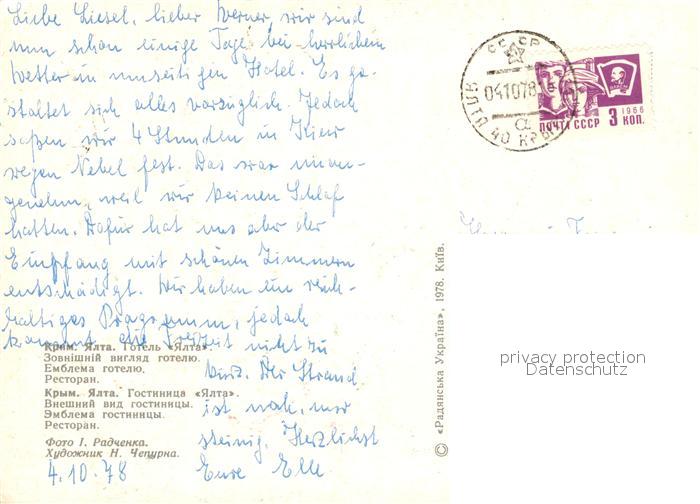 Liebe Liesel, lieber Werner, wir sind
nun schon einige Tage bei herrlichem
Wetter in umseitigen Hotel. Es ge-
staltet sich alles vorzüglich. Jedoch
saßen wir 4 Stunden in Kiew
wegen Nebel fest. Das war unan-
genehm, weil wir keinen Schlaf
hatten. Dafür hat uns aber der
Empfang mit schönen Zimmern
entschädigt. Wir haben ein reich-
haltiges Programm, jedoch
kommt die Freizeit nicht zu
kurz. Der Strand
ist nah, nur
steinig. Herzlichst
Eure Elle
4.10.78
Крим. Ялта. Готель «Ялта».
Зовнішній вигляд готелю.
Емблема готелю.
Ресторан.
Крым. Ялта. Гостиница «Ялта».
Внешний вид гостиницы.
Эмблема гостиницы.
Ресторан.
Фото І. Радченка.
Художник Н. Чепурна.
© «Радянська Україна», 1978. Київ.
СССР
041078
α
1966
ПОЧТА СССР 3 КОП.
privacy protection
Datenschutz